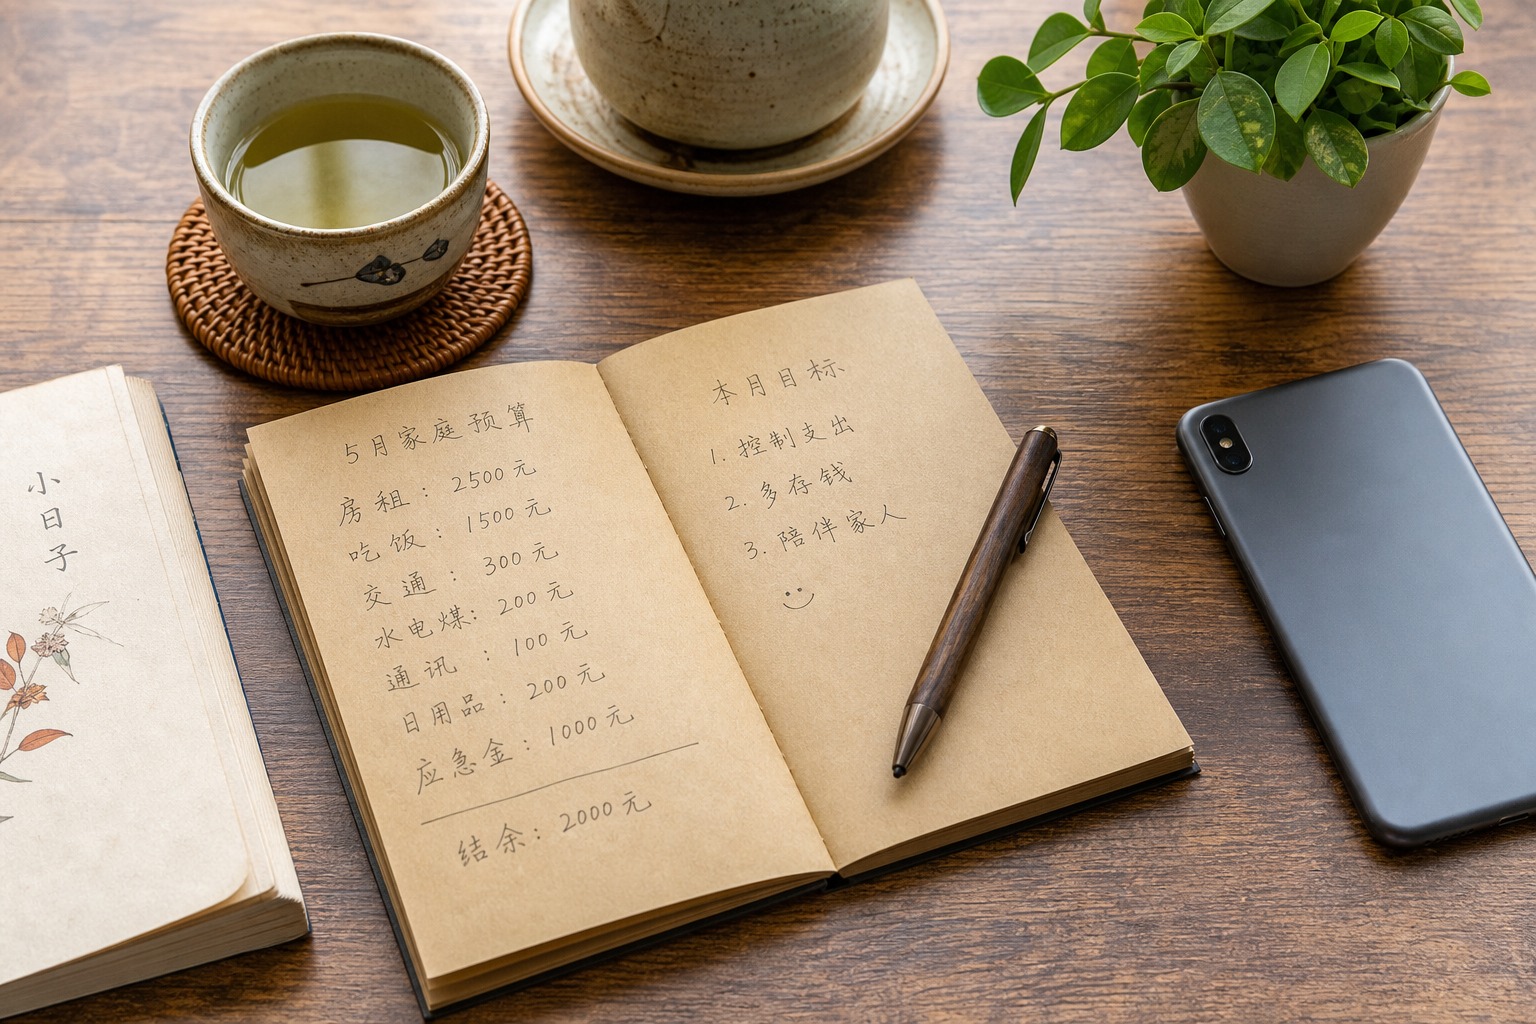 小日子
5月家庭预算
房租：2500元
吃饭：1500元
交通：300元
水电煤：200元
通讯：100元
日用品：200元
应急金：1000元
结余：2000元
本月目标
1. 控制支出
2. 多存钱
3. 陪伴家人